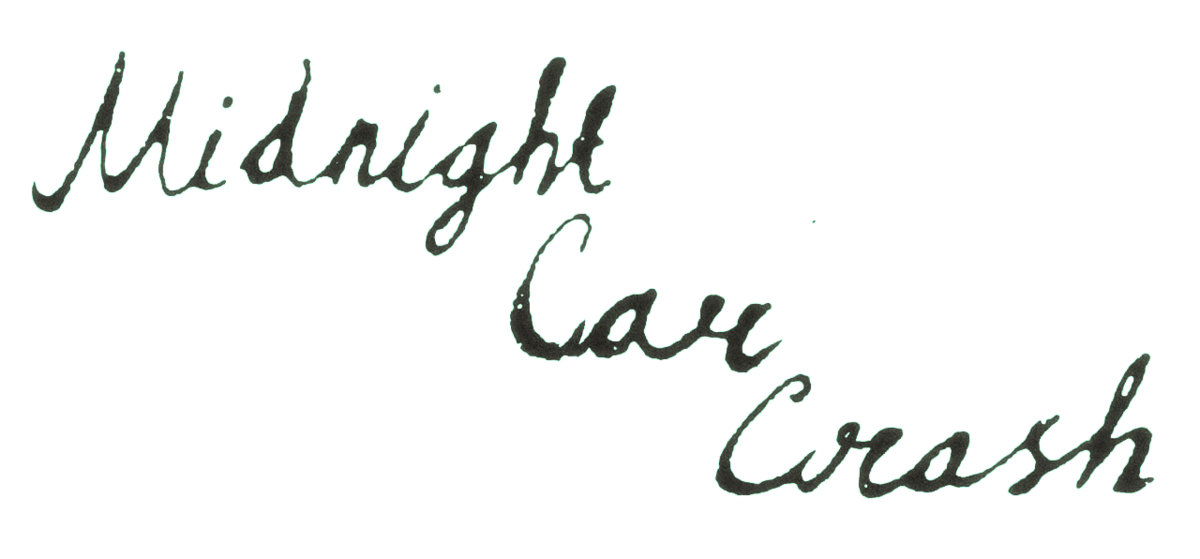 Midnight
Car
Crash